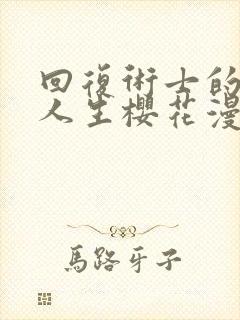 回復術士的
人生櫻花漫
馬路牙子